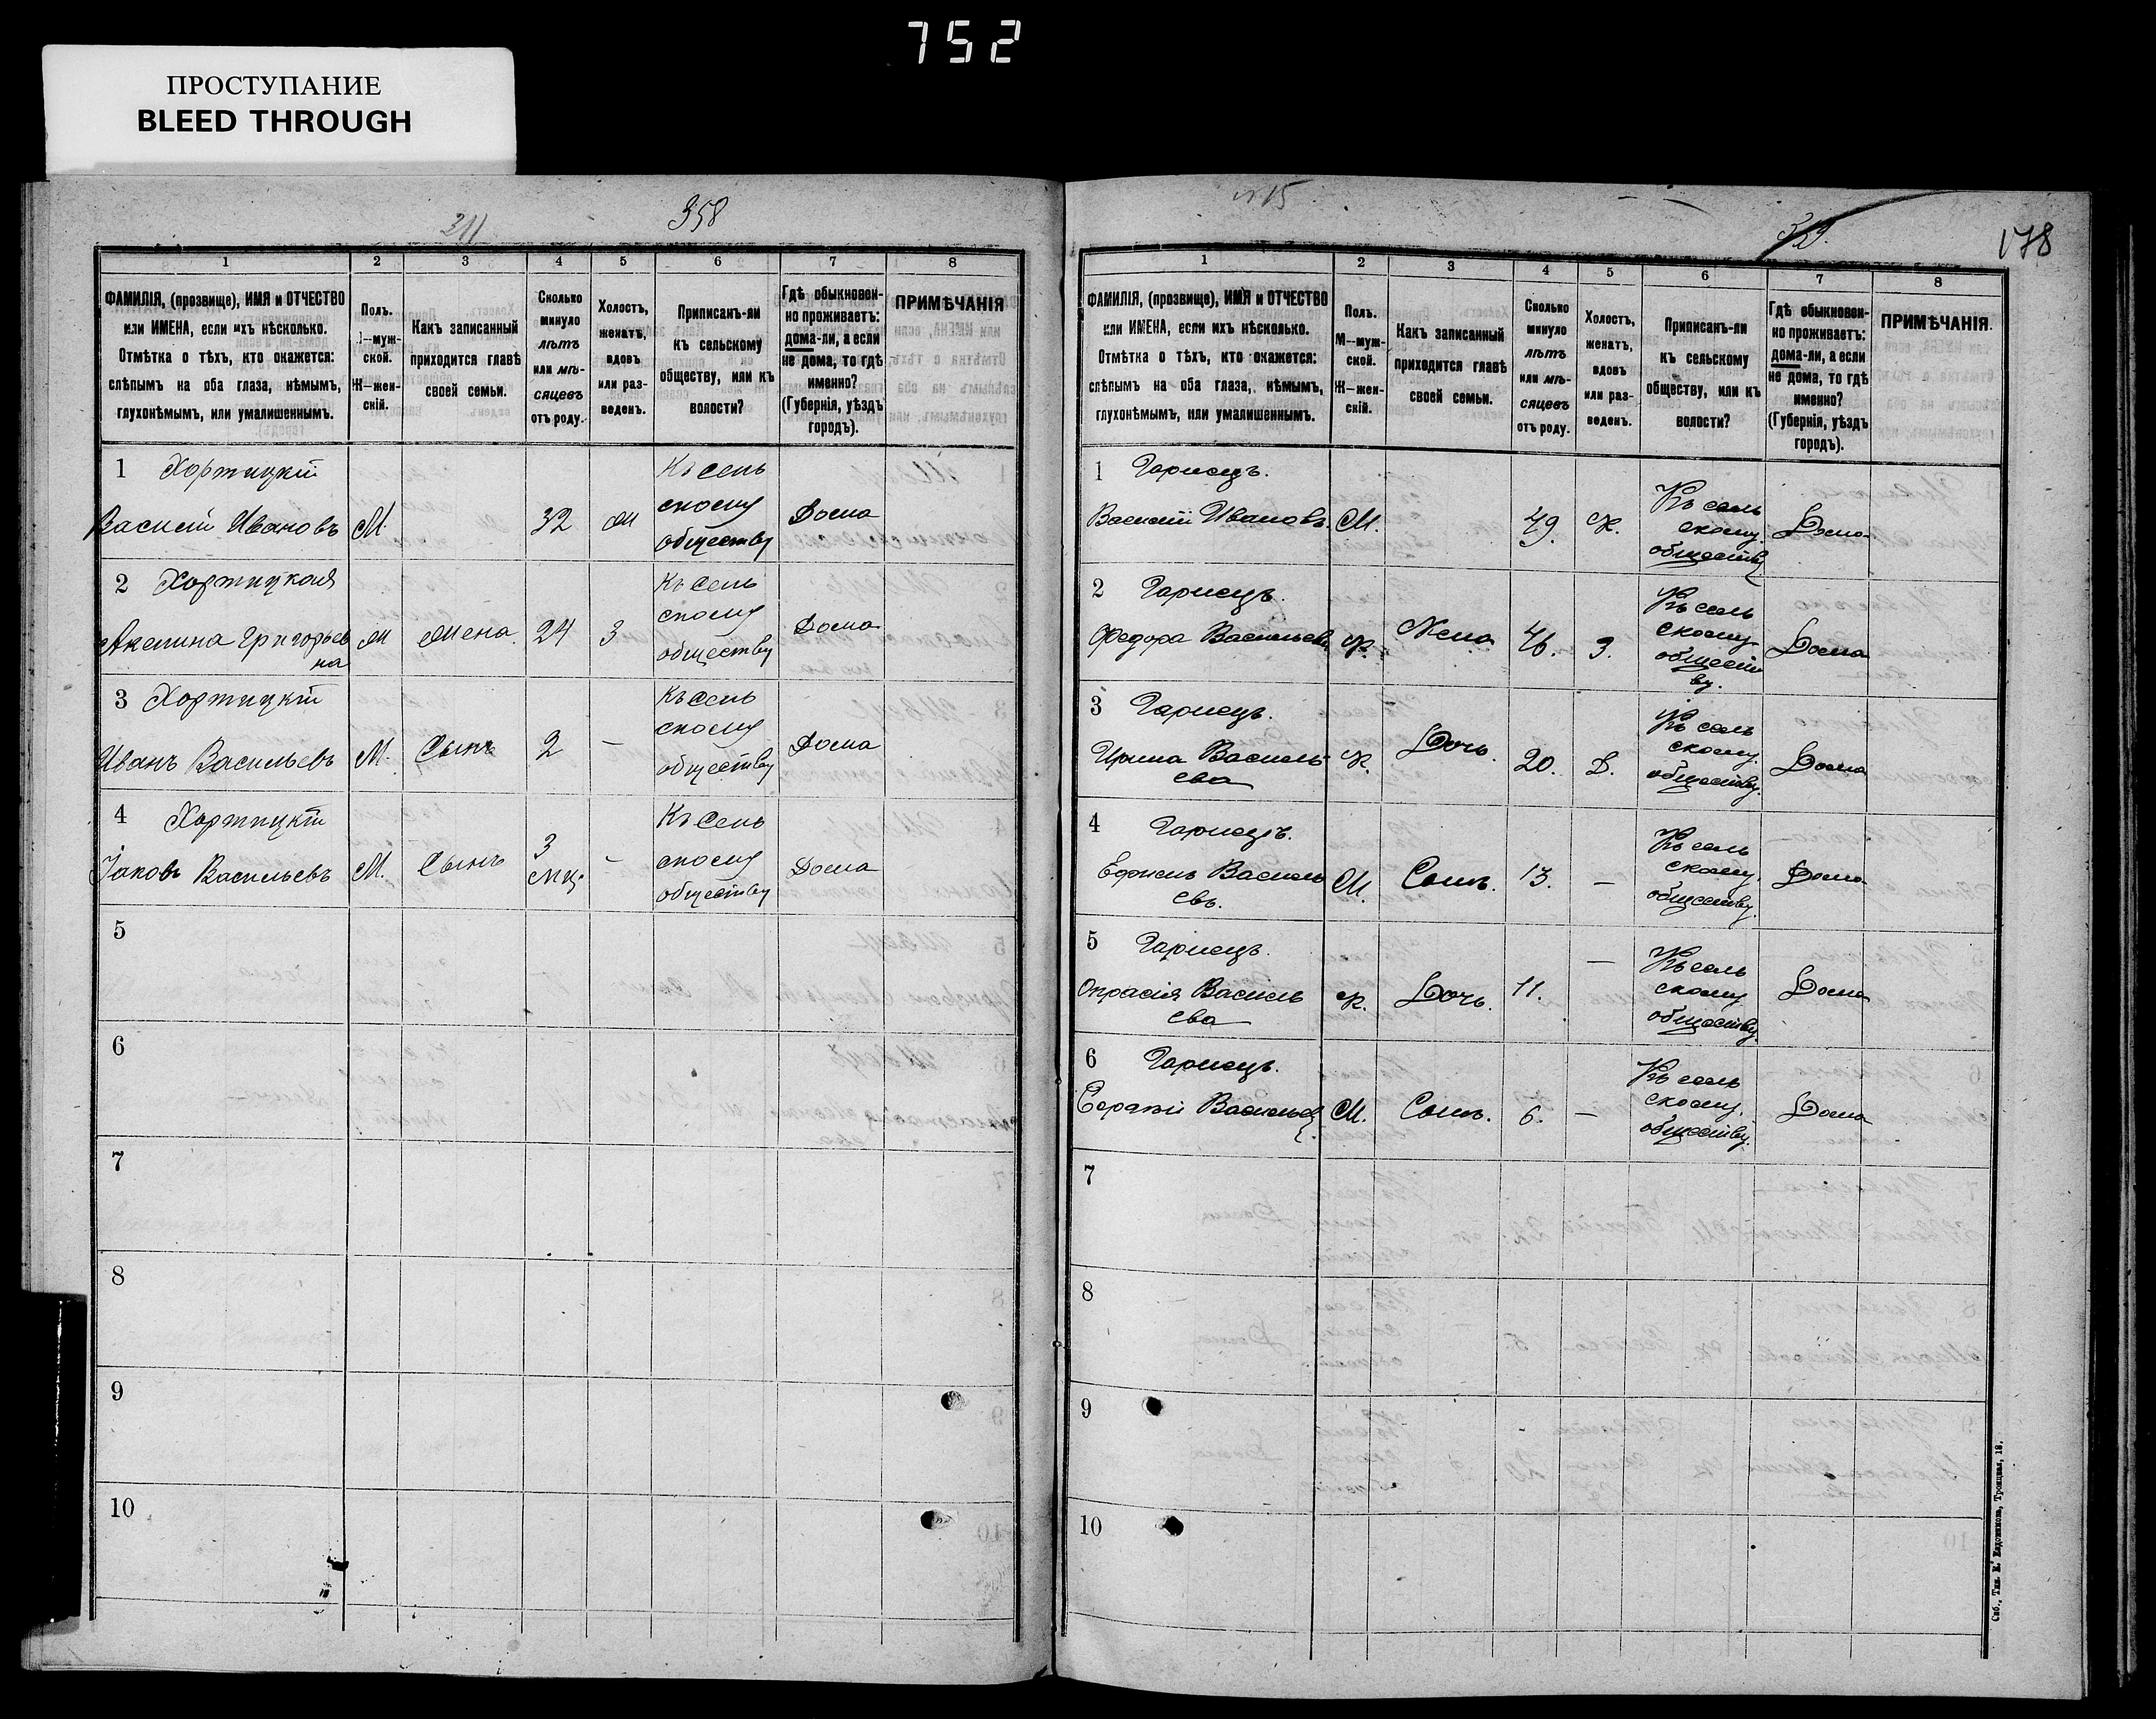 752
ПРОСТУПАНИЕ
BLEED THROUGH
311
358
1 2 3 4 5 6 7 8
ФАМИЛІЯ, (прозвище), ИМЯ и ОТЧЕСТВО
или ИМЕНА, если ихъ нѣсколько.
Отмѣтка о тѣхъ, кто окажется:
слѣпымъ на оба глаза, нѣмымъ,
глухонѣмымъ, или умалишеннымъ.
Полъ.
М—муж-
ской.
Ж—жен-
скій.
Какъ записанный
приходится главѣ
своей семьи.
Сколько
минуло
лѣтъ
или мѣ-
сяцевъ
отъ роду.
Холостъ,
женатъ,
вдовъ
или раз-
веденъ.
Приписанъ-ли
къ сельскому
обществу, или къ
волости?
Гдѣ обыкновен-
но проживаетъ:
дома-ли, а если
не дома, то гдѣ
именно?
(Губернія, уѣздъ
городъ).
ПРИМѢЧАНІЯ
1 Хортицкій
Василій Ивановъ М. 32 ж
Къ сель
скому
обществу
Дома
2 Хортицкая
Акелина Григорьев
на
ж жена. 24 З
Къ сель
скому
обществу
Дома
3 Хортицкій
Иванъ Васильевъ М. Сынъ 2 —
Къ сель
скому
обществу
Дома
4 Хортицкій
Іаковъ Васильевъ М. Сынъ
3
мц. —
Къ сель
скому
обществу
Дома
5
6
7
8
9
10
№ 15
178
1 2 3 4 5 6 7 8
ФАМИЛІЯ, (прозвище), ИМЯ и ОТЧЕСТВО
или ИМЕНА, если ихъ нѣсколько.
Отмѣтка о тѣхъ, кто окажется:
слѣпымъ на оба глаза, нѣмымъ,
глухонѣмымъ, или умалишеннымъ.
Полъ.
М—муж-
ской.
Ж—жен-
скій.
Какъ записанный
приходится главѣ
своей семьи.
Сколько
минуло
лѣтъ
или мѣ-
сяцевъ
отъ роду.
Холостъ,
женатъ,
вдовъ
или раз-
веденъ.
Приписанъ-ли
къ сельскому
обществу, или къ
волости?
Гдѣ обыкновен-
но проживаетъ:
дома-ли, а если
не дома, то гдѣ
именно?
(Губернія, уѣздъ
городъ).
ПРИМѢЧАНІЯ.
1 Гарнецъ.
Василій Ивановъ. М. 49. Ж.
Къ сель
скому.
обществу
Дома
2 Гарнецъ.
Федора Васильева ж. Жена 46. З.
Къ сель
скому
общест
ву.
Дома
3 Гарнецъ.
Ирина Василь
ева
ж. Дочь. 20. Д.
Къ сель
скому.
обществу.
Дома
4 Гарнецъ.
Ефимъ Василь
евъ.
М. Сынъ. 13. —
Къ сель
скому.
обществу.
Дома
5 Гарнецъ.
Опрасія Василь
ева
ж. Дочь. 11. —
Къ сель
скому
обществу.
Дома
6 Гарнецъ.
Васильев М. Сынъ. 6. —
Къ сель
скому.
обществу.
Дома
7
8
9
10